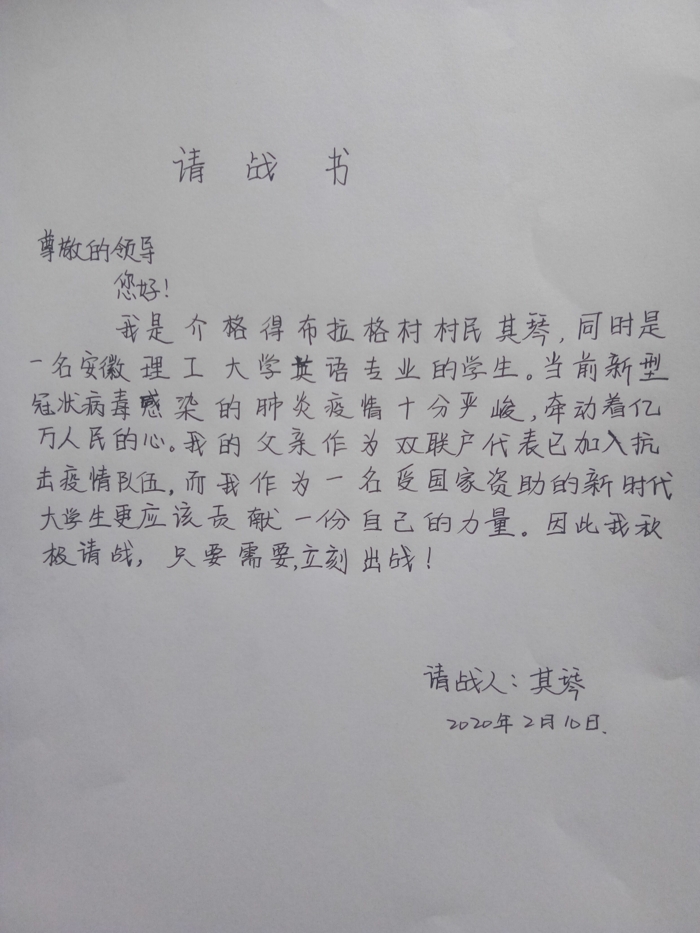 请战书
尊敬的领导
您好!
我是介格得布拉格村村民其琴,同时是
一名安徽理工大学英语专业的学生。当前新型
冠状病毒感染的肺炎疫情十分严峻,牵动着亿
万人民的心。我的父亲作为双联户代表已加入抗
击疫情队伍,而我作为一名受国家资助的新时代
大学生更应该贡献一份自己的力量。因此我积
极请战,只要需要,立刻出战!
请战人:其琴
2020年2月10日.